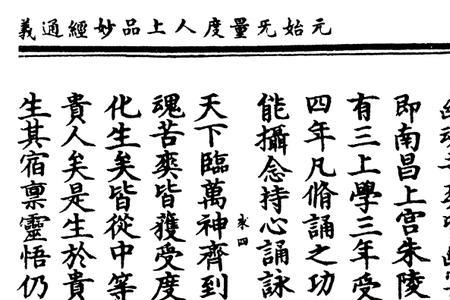 元始旡量度人上品妙經通義
即南昌上宫朱陵
有三上學三年受
四年凡脩誦之功
能攝念持心誦詠
來四
天下臨萬神齊到
魂苦爽皆獲受度
化生矣皆從中等
貴人矣是生於貴
生其宿禀靈悟仍